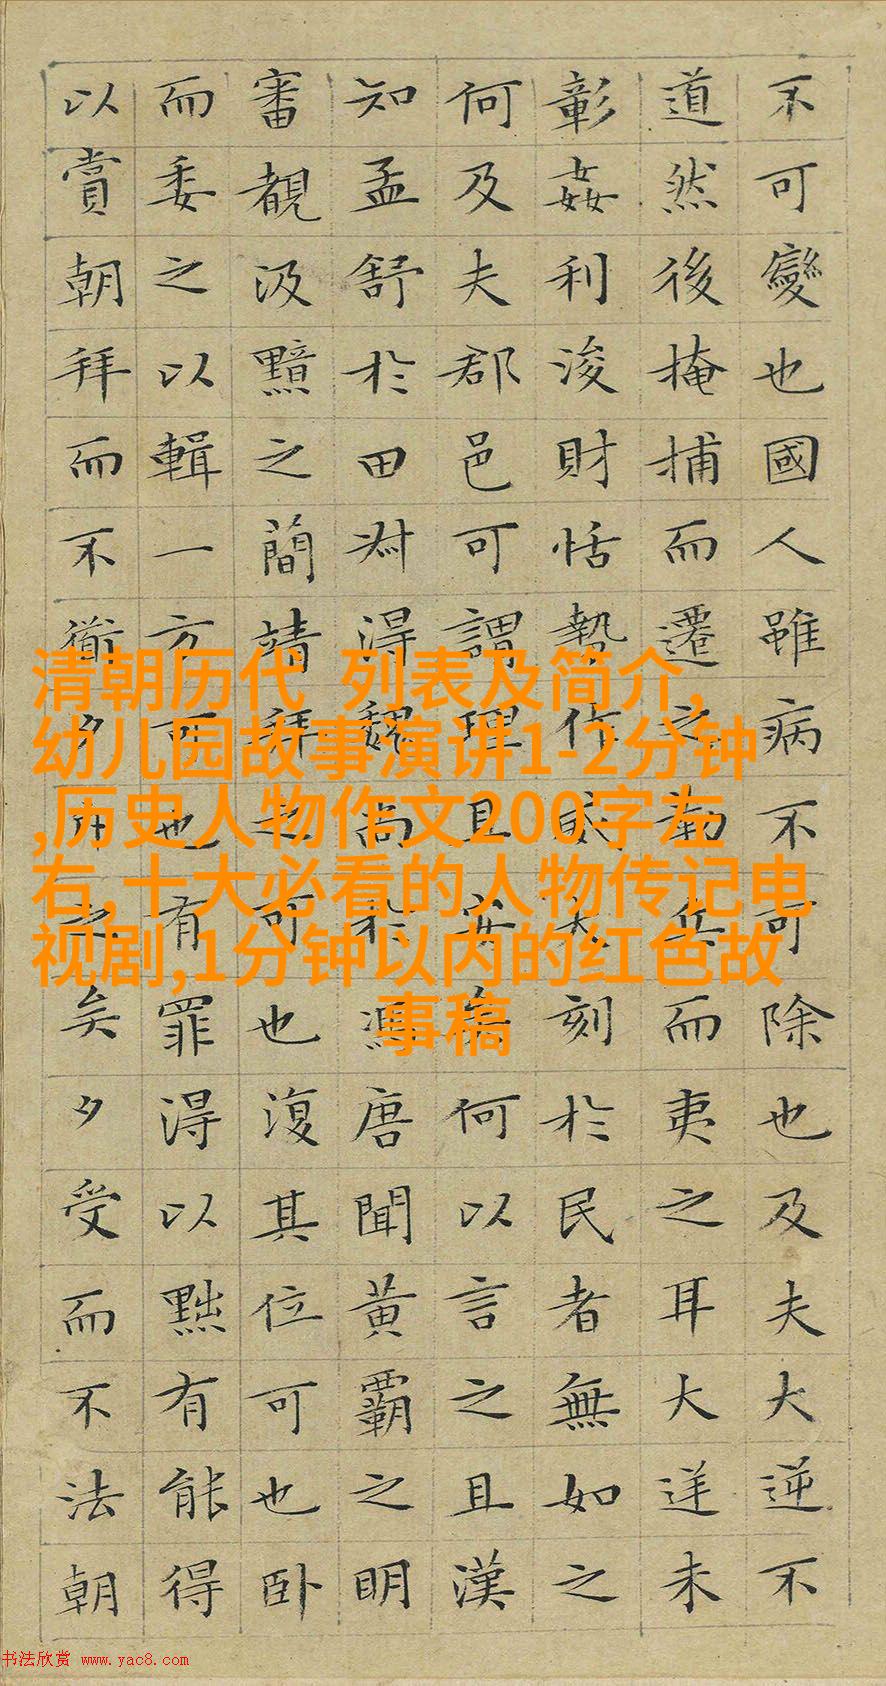 不可變也國人雖病不可除也及夫大逆不
道然後掩捕而遷之勒兵而夷之耳大逆未
彰姦利浚財怙勢作威大刻於民者無如之
何及夫郡邑可謂理且安矣何以言之且漢
知孟舒於田叔得魏尚於馮唐聞黃霸之明
審覩汲黯之簡靖拜之可也復其位可也卧
而委之以輯一方可也有罪得以黜有能得
以賞朝拜而不衜夕斥之矣夕受而不法朝
清朝历代 列表及简介,
幼儿园故事演讲1-2分钟
,历史人物作文200字左
右,十大必看的人物传记电
视剧,1分钟以内的红色故
事稿
书法欣赏 www.yac8.com